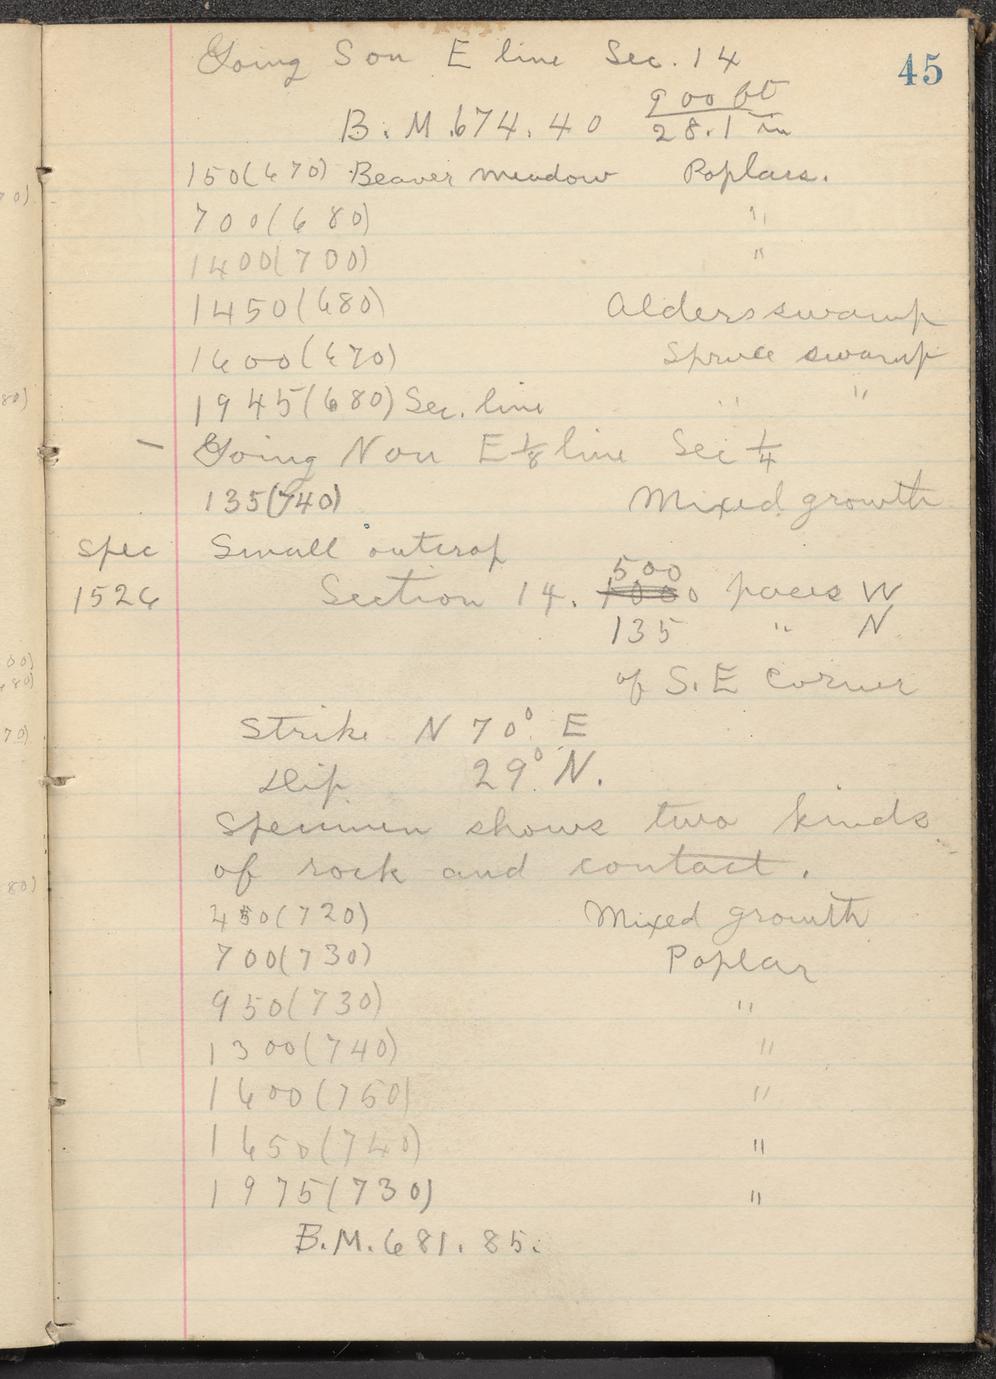 45
Going S on E line Sec. 14
900 ft
B.M. 674.40 28.1 in
150(670) Beaver meadow Poplars.
700(680) "
1400(700) "
1450(680) Alders swamp
1600(670) Spruce swamp
1945(680) Sec. line " "
— Going N on E 1/8 line Sec 1/4
135(740) Mixed growth
Spec Small outcrop
500
1526 Section 14. 1000 paces W
135 " N
of S.E Corner
Strike N 70° E
Dip 29° N.
Specimen shows two kinds
of rock and contact.
450(720) Mixed growth
700(730) Poplar
950(730) "
1300(740) "
1600(750) "
1650(740) "
1975(730) "
B.M. 681.85.